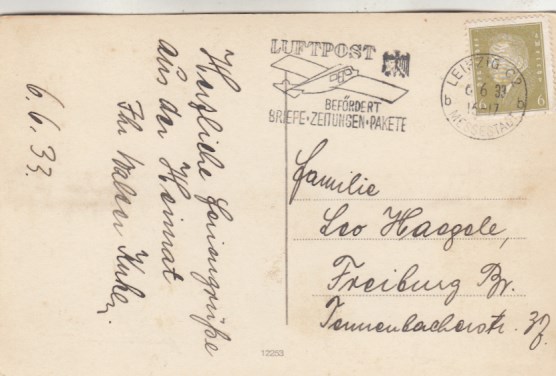 Herzliche Feriengrüße
aus der Heimat
Ihr Walter
6.6.33.
LUFTPOST
BEFÖRDERT
BRIEFE·ZEITUNGEN·PAKETE
LEIPZIG C2
6 6 33
16-17
b b
MESSESTADT
6
Familie
Leo Haegele,
Freiburg Br.
Tennenbacherstr. 37
12253